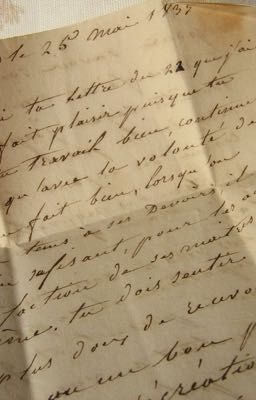 le 25 Mai 1837
ta lettre du 22 que j'ai
fait plaisir puisque tu
travail bien, continue
qu'avec la volonté de
fait bien, lorsqu'on
tems à ses Devoirs, il
pour les
faction de ses maitres
tu dois sentir
plus doux de
un bon p
récréatio